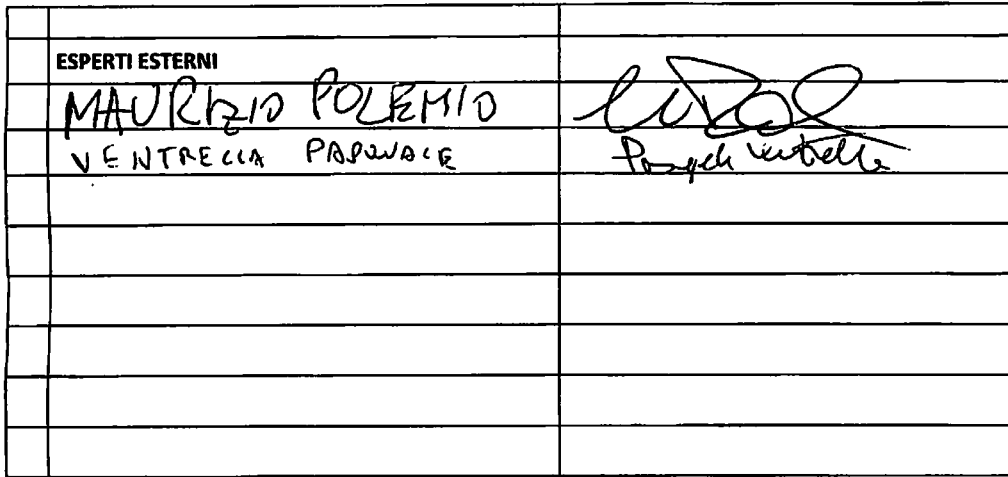 ESPERTI ESTERNI
MAURIZIO POLEMIO
VENTRELLA PASQUALE
Pasquale Ventrella